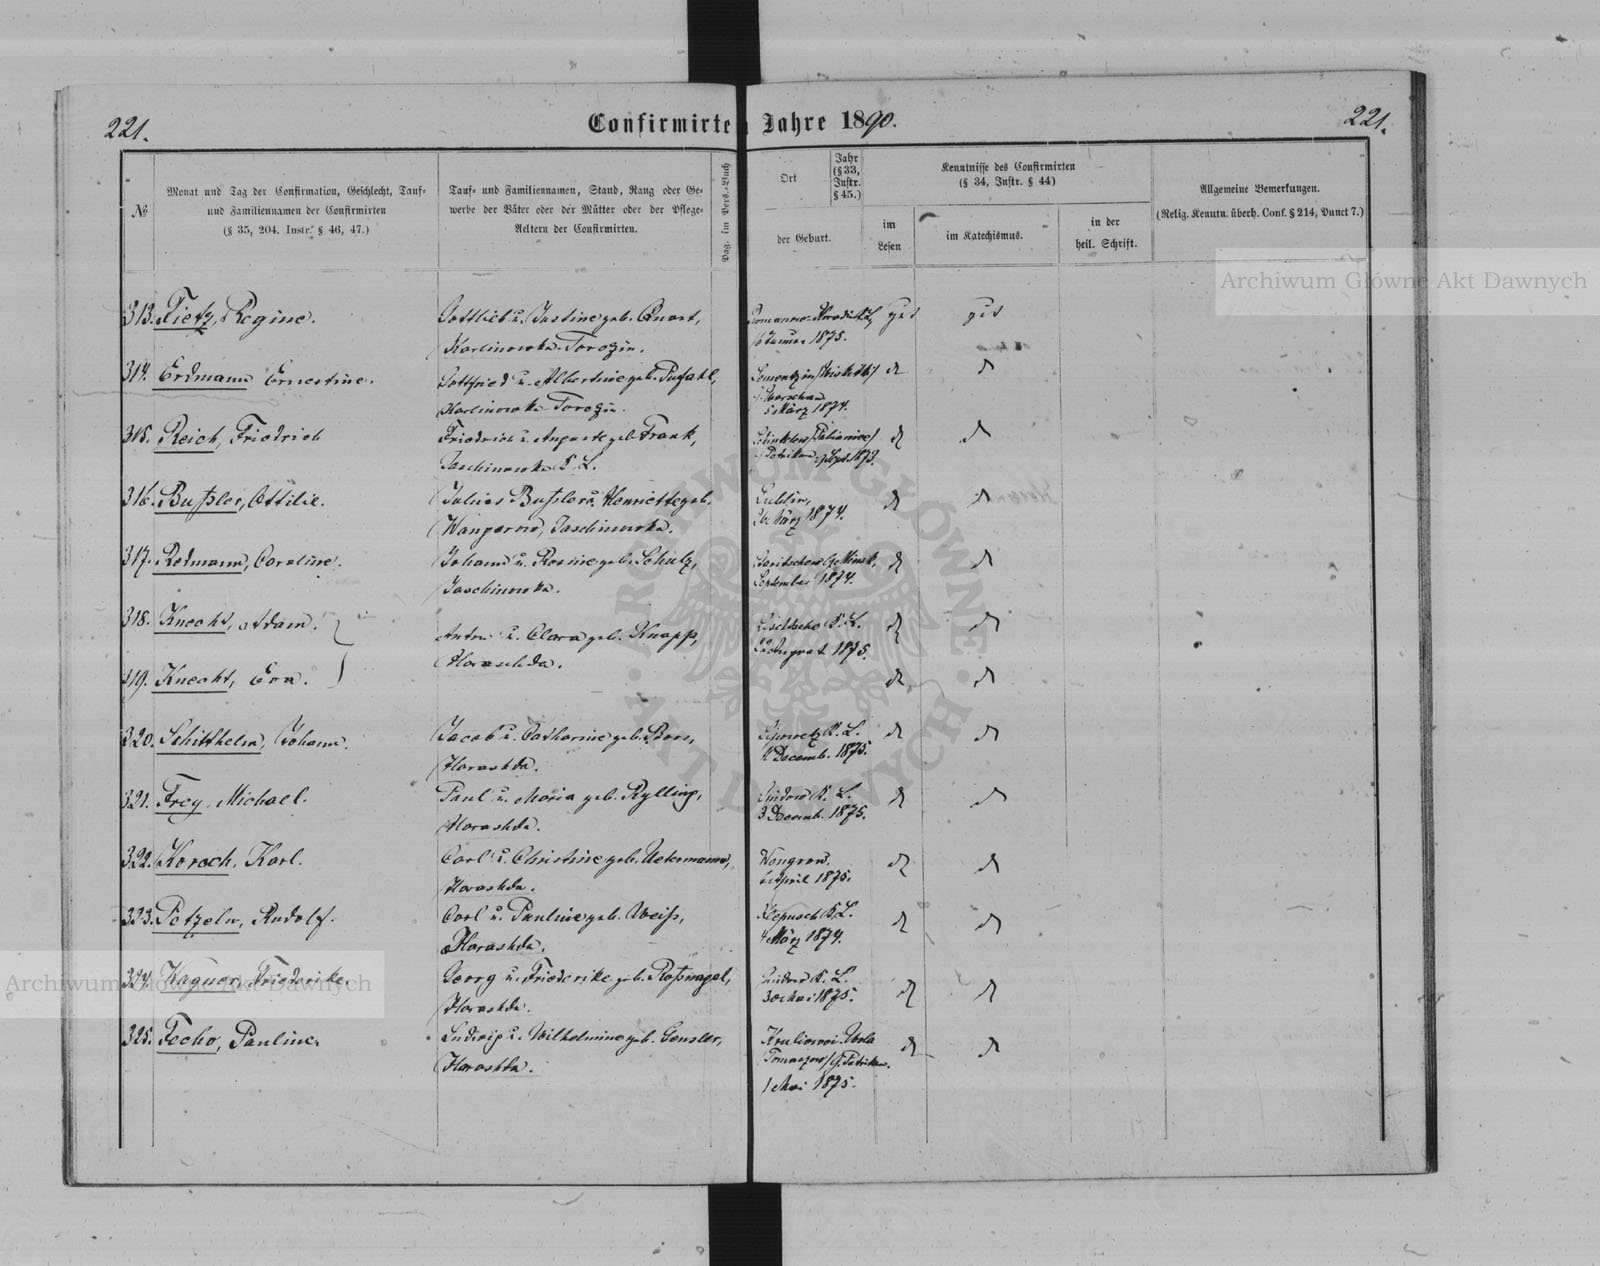 221.
Confirmirten Jahre 1890.
221.
№
Monat und Tag der Confirmation, Geschlecht, Tauf-
und Familiennamen der Confirmirten
(§ 35, 204. Instr. § 46, 47.)
Tauf- und Familiennamen, Stand, Rang oder Ge-
werbe der Väter oder der Mütter oder der Pflege-
Aeltern der Confirmirten.
Pag. im Pers.-Buch
Ort
Jahr
(§ 33,
Instr.
§ 45.)
der Geburt.
Kenntnisse des Confirmirten
(§ 34, Instr. § 44)
im
Lesen
im Katechismus.
in der
heil. Schrift.
Allgemeine Bemerkungen.
(Relig. Kenntn. überh. Conf. § 214, Punct 7.)
Archiwum Główne Akt Dawnych
313. Tietz, Regine.
Gottlieb u. Justine geb. Quast,
Karlinowka Torozin.
1875.
gut
gut
314. Erdmann Ernestine.
Gottfried u. Albertine geb. Pufahl,
Karlinowka Torozin.
Warschau
5 März 1874.
d
d
315. Reich, Friedrich
Friedrich u. Auguste geb. Frank,
Jaschinowka K. L.
/Pabianice/
Petrikau Sept. 1873.
d
d
316. Bußler, Ottilie.
Julius Bußler u. Henriette geb.
Wangerow, Jaschinowka.
Lublin,
März 1874.
d
d
317. Redmann, Caroline.
Johann u. Rosine geb. Schulz,
Jaschinowka.
G. Minsk,
September 1874.
d
d
318. Knecht, Adam.
Anton u. Clara geb. Knapp,
Haraschda.
K. L.
22 August 1875.
d
d
319. Knecht, Eva.
d
d
320. Schitthelm, Johann.
Jacob u. Catharine geb.
Harashda.
K. L.
Decemb. 1875.
d
d
321. Frey, Michael.
Paul u. Maria geb. Rylling,
Harashda.
K. L.
3 Decemb. 1875.
d
d
322. Korach, Karl.
Carl u. Christine geb. Uetermann,
Harashda.
Wengrow.
April 1875.
d
d
323. Petzeln, Rudolf.
Carl u. Pauline geb. Weiß,
Harashda.
K. L.
4 März 1874.
d
d
324. Wagner, Friederike.
Georg u. Friederike geb. Roßnagel,
Harashda.
K. L.
30 Mai 1875.
d
d
325. Fecho, Pauline.
Ludwig u. Wilhelmine geb. Gensler,
Harashda.
Wola
/Tomaszow/ G. Petrikau.
1 Mai 1875.
d
d
Archiwum Główne Akt Dawnych
ARCHIWUM GŁÓWNE AKT DAWNYCH